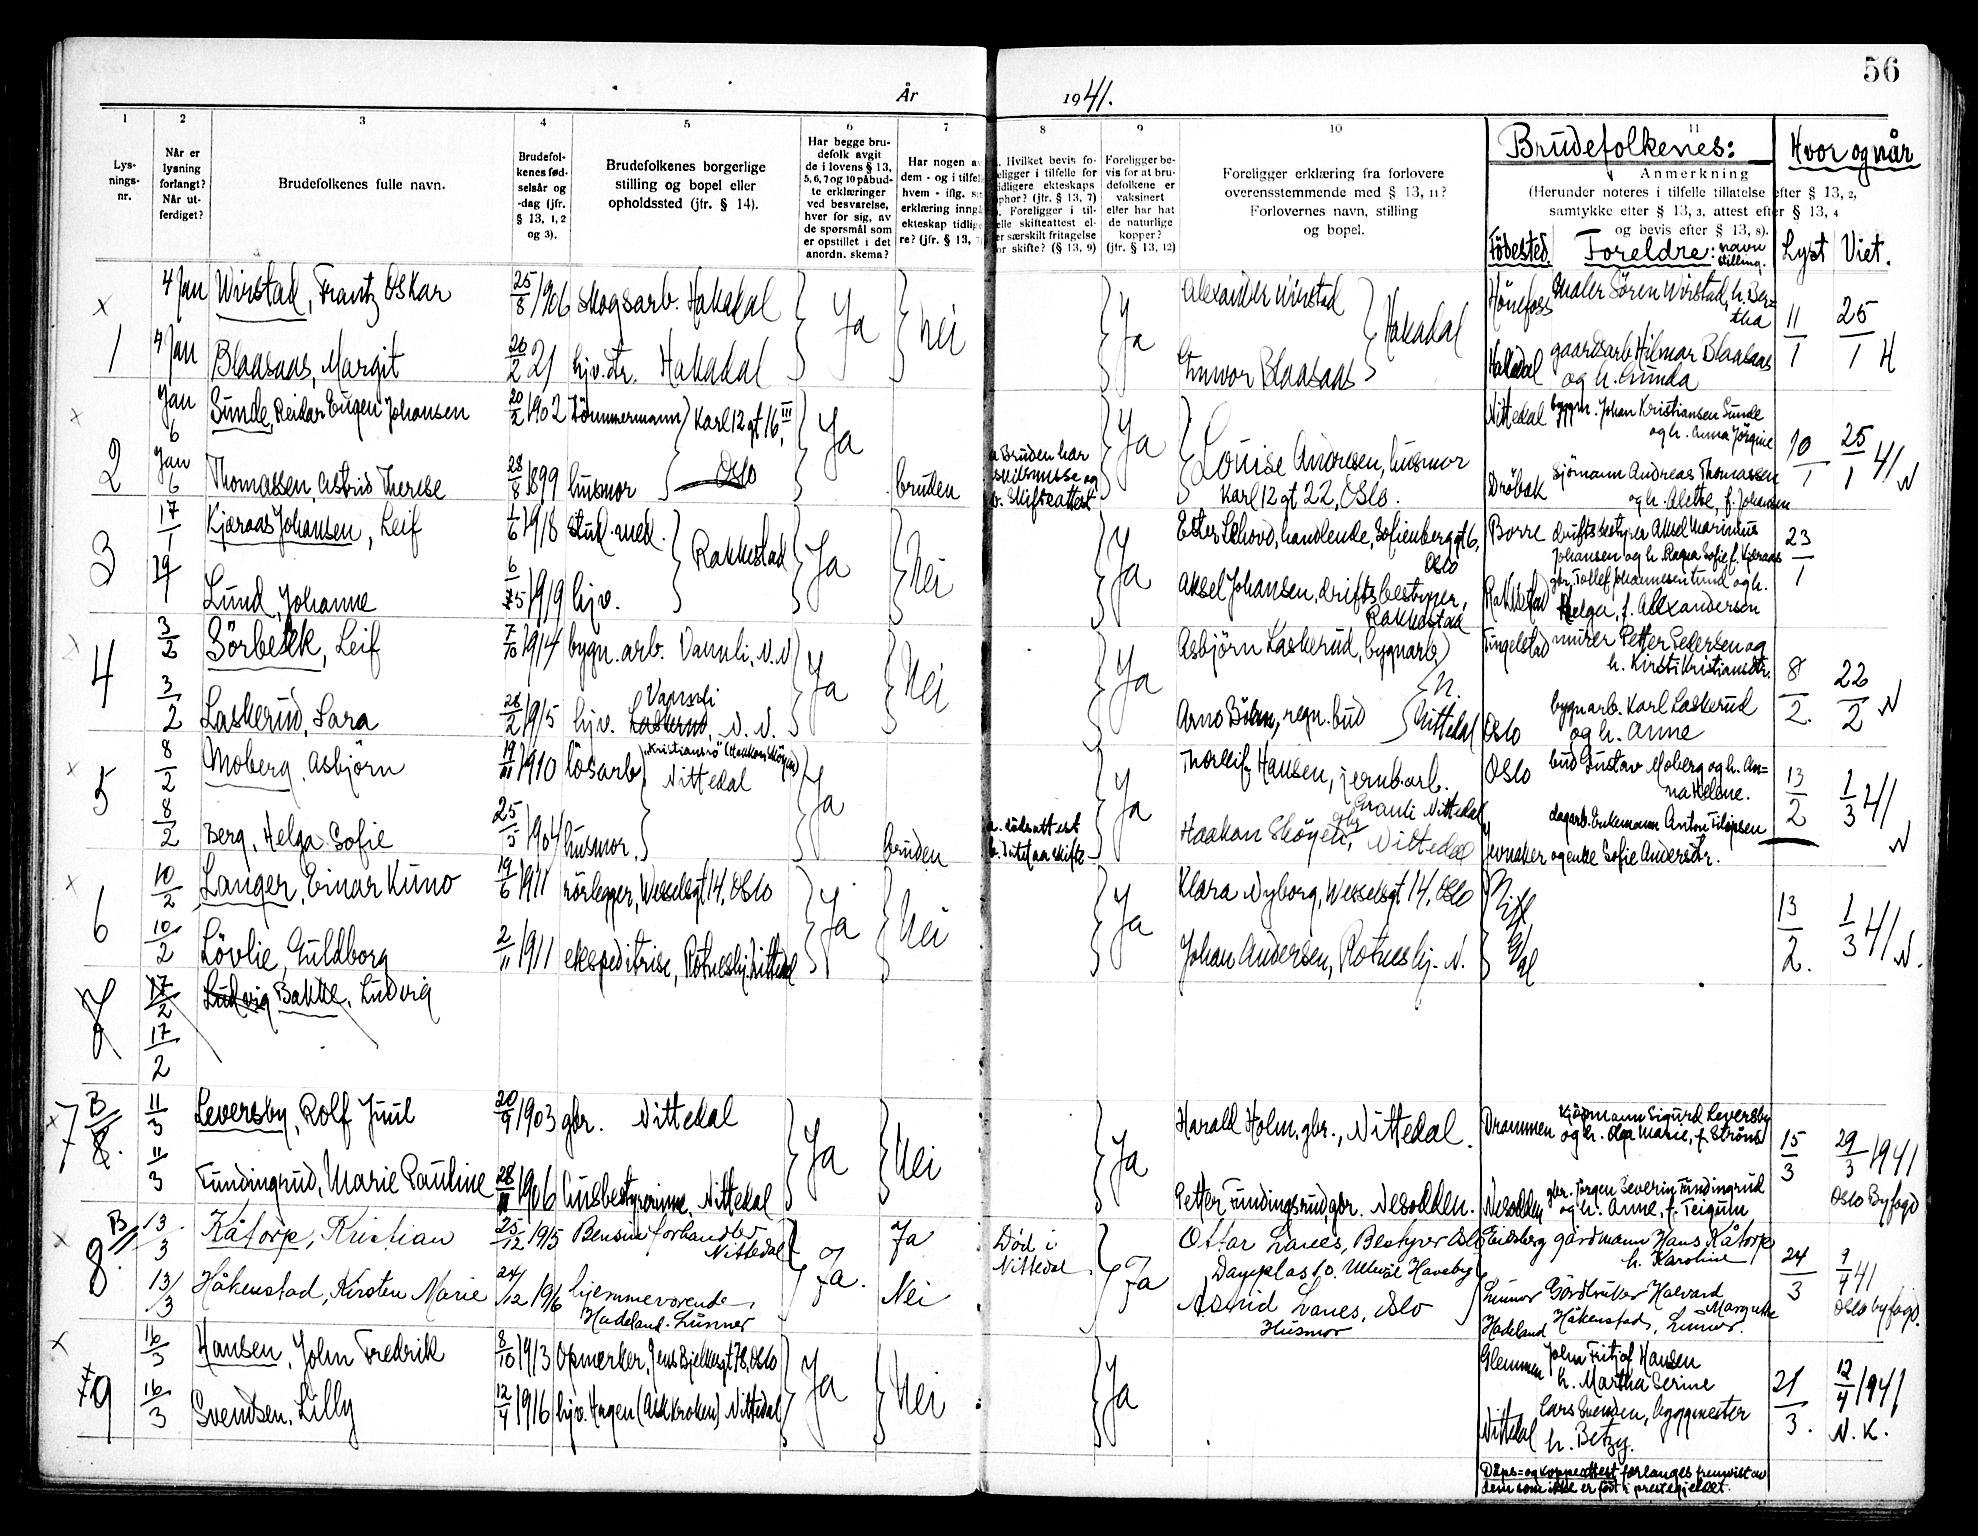 56
År 1941.
1 2 3 4 5 6 7 8 9 10 11
Lys-
nings-
nr.
Når er
lysning
forlangt?
Når ut-
ferdiget?
Brudefolkenes fulle navn.
Brudefol-
kenes fød-
selsår og
-dag (jfr.
§ 13, 1, 2
og 3).
Brudefolkenes borgerlige
stilling og bopel eller
opholdssted (jfr. § 14).
Har begge bru-
defolk avgit
de i lovens § 13,
5, 6, 7 og 10 påbud-
te erklæringer
ved besvarelse,
hver for sig, av
de spørsmål som
er opstillet i det
anordn. skema?
Har nogen av
dem - og i tilfelle
hvem - iflg. sin
erklæring inngått
ekteskap tidlige-
re? (jfr. § 13, 7)
Hvilket bevis fo-
religger i tilfelle for
tidligere ekteskaps
ophør? (jfr. § 13, 7)
Foreligger i til-
felle skifteattest el-
ler særskilt fritagelse
for skifte? (§ 13, 9)
Foreligger be-
vis for at bru-
defolkene er
vaksinert
eller har hat
de naturlige
kopper?
(jfr. § 13, 12)
Foreligger erklæring fra forlovere
overensstemmende med § 13, 11?
Forlovernes navn, stilling
og bopel.
Brudefolkenes:
Anmerkning
(Herunder noteres i tilfelle tillatelse efter § 13, 2,
samtykke efter § 13, 3, attest efter § 13, 4
og bevis efter § 13, 8).
Fødested. Foreldre: navn stilling.
Hvor og når
Lyst Viet.
x 1
4 Jan Wirstad, Frantz Oskar 25/8 1906 skogsarb. Hakadal Ja Nei Ja Alexander Wirstad } Hakadal Hönefoss maler Sören Wirstad, h. Ber=
tha 11/1 25/1 H
4 Jan Blaasaas, Margit 26/2 21 hjv. dtr. Hakadal Gunvor Blaasaas Hakadal gaardsarb. Hilmar Blaasaas
og h. Gunda
x 2
Jan 6 Sunde, Reidar Eugen Johansen 20/2 1902 Tömmermann } Karl 12 gt 16 III, Oslo Ja Ja Nittedal byggm. Johan Kristiansen Sunde
og h. Anna Jörgine 10/1 25/1 41 N
Jan 6 Thomassen, Astrid Therese 28/8 1899 husmor bruden a Bruden har
skilsmisse og
b. Skifteattest Louise Andresen, husmor
Karl 12 gt 22, Oslo. Dröbak sjömann Andreas Thomassen
og h. Alette, f. Johansen
3
17/1 Kjæraas Johansen, Leif 1/6 1918 stud. med. } Rakkestad Ja Nei Ja Ester Lehovd, handlende, Sofienberggt 6,
Oslo Borre driftsbestyrer Aksel Marinius
Johansen og h. Ragna Sofie f. Kjæraas 23/1
Lund, Johanne 1919 hjv. Aksel Johansen, driftsbestyrer,
Rakkestad Rakkestad gbr. Tollef Johannesen Lund og h.
Helga, f. Alexandersen
x 4
3/2 Sörbekk, Leif 7/10 1914 bygn. arb. Vannli, N.N. Ja Nei Ja Asbjörn Laskerud, bygnarb. Tingelstad murer Petter Pedersen og
h. Kirsti Kristiansdtr. 8/2. 22/2 N
3/2 Laskerud, Sara 28/2 1915 hjv. Vannli N. N. Arno Böhn, regn. bud } N. Nittedal Oslo bygnarb. Karl Laskerud
og h. Anne
x 5
8/2 Moberg, Asbjörn 1910 lösarb } "Kristiansrö" (Haakon Skøyen)
Nittedal Ja Ja Thorleif Hansen, jernb. arb.
Granli Nittedal Oslo bud Gustav Moberg og h. An=
na Helene. 13/2 1/3 41 N
8/2 Berg, Helga Sofie 25/5 1904 husmor. bruden a. dödsattest
b. Sitt. paa skifte Haakon Skøyen, gbr. Nittedal Jevnaker dagarb. Enkemann Anton Filipsen
og enke Sofie Andersdtr.
x 6
10/2 Langer, Einar Kuno 19/6 1911 rörlegger, Wesselsgt 14, Oslo Ja Nei Ja Klara Nyborg, Wesselsgt 14, Oslo Nittedal 13/2. 1/3 41 N.
10/2 Lövlie, Guldborg 2/11 1911 ekspeditrise, Rotneshj. Nittedal Johan Andersen, Rotneshj. N.
7
17/2 Ludvig Bakke, Ludvig
17/2
x 7 B 8.
11/3 Leversby, Rolf Juul 20/9 1903 gbr. Nittedal Ja Nei Ja Harald Holm, gbr., Nittedal. Drammen kjöpmann Sigurd Leversby
og h. Olga Marie, f. Ströms 15/3 29/3 1941
Oslo Byfogd
11/3 Fundingrud, Marie Pauline 1906 husbestyrerinne, Nittedal Petter Fundingsrud, gbr. Nesodden. Nesodden gbr. Jörgen Severin Fundingrud
og h. Anne, f. Teigum
x 8 B
13/3 Kåtorp, Kristian 25/12 1915 Bensinforhandler
Nittedal Ja Ja Död i
Nittedal Ja Ottar Lanes, Bestyrer Oslo
Damplas 10. Ullevål Haveby Eidsberg gårdmann Hans Kåtorp
h. Karoline 24/3 9/4 41
Oslo byfogd.
13/3 Håkenstad, Kirsten Marie 24/12 1916 hjemmeværende
Hadeland. Lunner Nei Astrid Lanes, Oslo
Husmor Lunner
Hadeland Gårdbruker Halvard
Håkenstad, Margrethe Lunner.
x 9
16/3 Hansen, John Fredrik 8/10 1913 Opmerker, Jens Bjelkesgt 78, Oslo Ja Nei Ja Glemmen John Fritjof Hansen
h. Martha Serine 21/3. 12/4 1941
N. K.
16/3 Svendsen, Lilly 12/4 1916 hjv. Hagen (Aas Kroken) Nittedal Nittedal Lars Svendsen, byggmester
h. Betzy.
Dåps= og koppeattest forlanges fremvist av
dem som ikke er født i prestegjeldet.